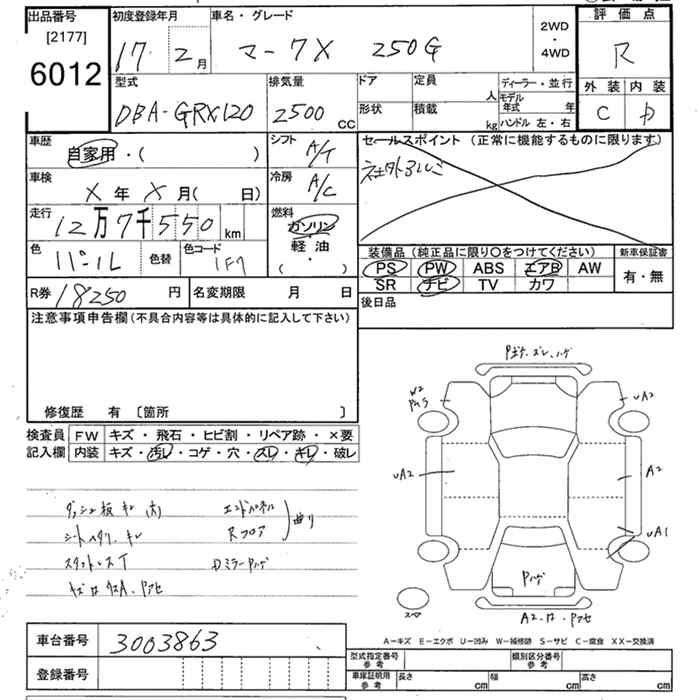 出品番号
[2177]
6012
初度登録年月
17. 2月
車名・グレード
マークX 250G
2WD
・
4WD
評価点
R
外装 内装
C D
型式
DBA-GRX120
排気量
2500 CC
ドア
定員 人
形状
積載 kg
ディーラー・並行
モデル年式 年
ハンドル 左・右
車歴
自家用・( )
車検
X年X月( 日)
走行
12万7千550 km
色
パール
色替
色コード
1F7
シフト
A/T
冷房
A/C
燃料
ガソリン
軽油
・
( )
セールスポイント (正常に機能するものに限ります)
社外アルミ
装備品 (純正品に限り○をつけてください)
PS PW ABS エアB AW
SR ナビ TV カワ
新車保証書
有・無
R券 18250円
名変期限 月 日
後日品
注意事項申告欄(不具合内容等は具体的に記入して下さい)
修復歴 有 〔箇所 〕
検査員 FW キズ・飛石・ヒビ割・リペア跡・×要
記入欄 内装 キズ・汚レ・コゲ・穴・スレ・キレ・破レ
エンドパネル
Rフロア
曲り
シートヘタリ. キレ
W2
UA2
UA2
A2
UA1
Pハゲ
車台番号 3003863
登録番号
A-キズ E-エクボ U-凹み W-補修跡 S-サビ C-腐食 XX-交換済
型式指定番号
参考
類別区分番号
参考
車庫証明用
参考
長さ cm
幅 cm
高さ cm